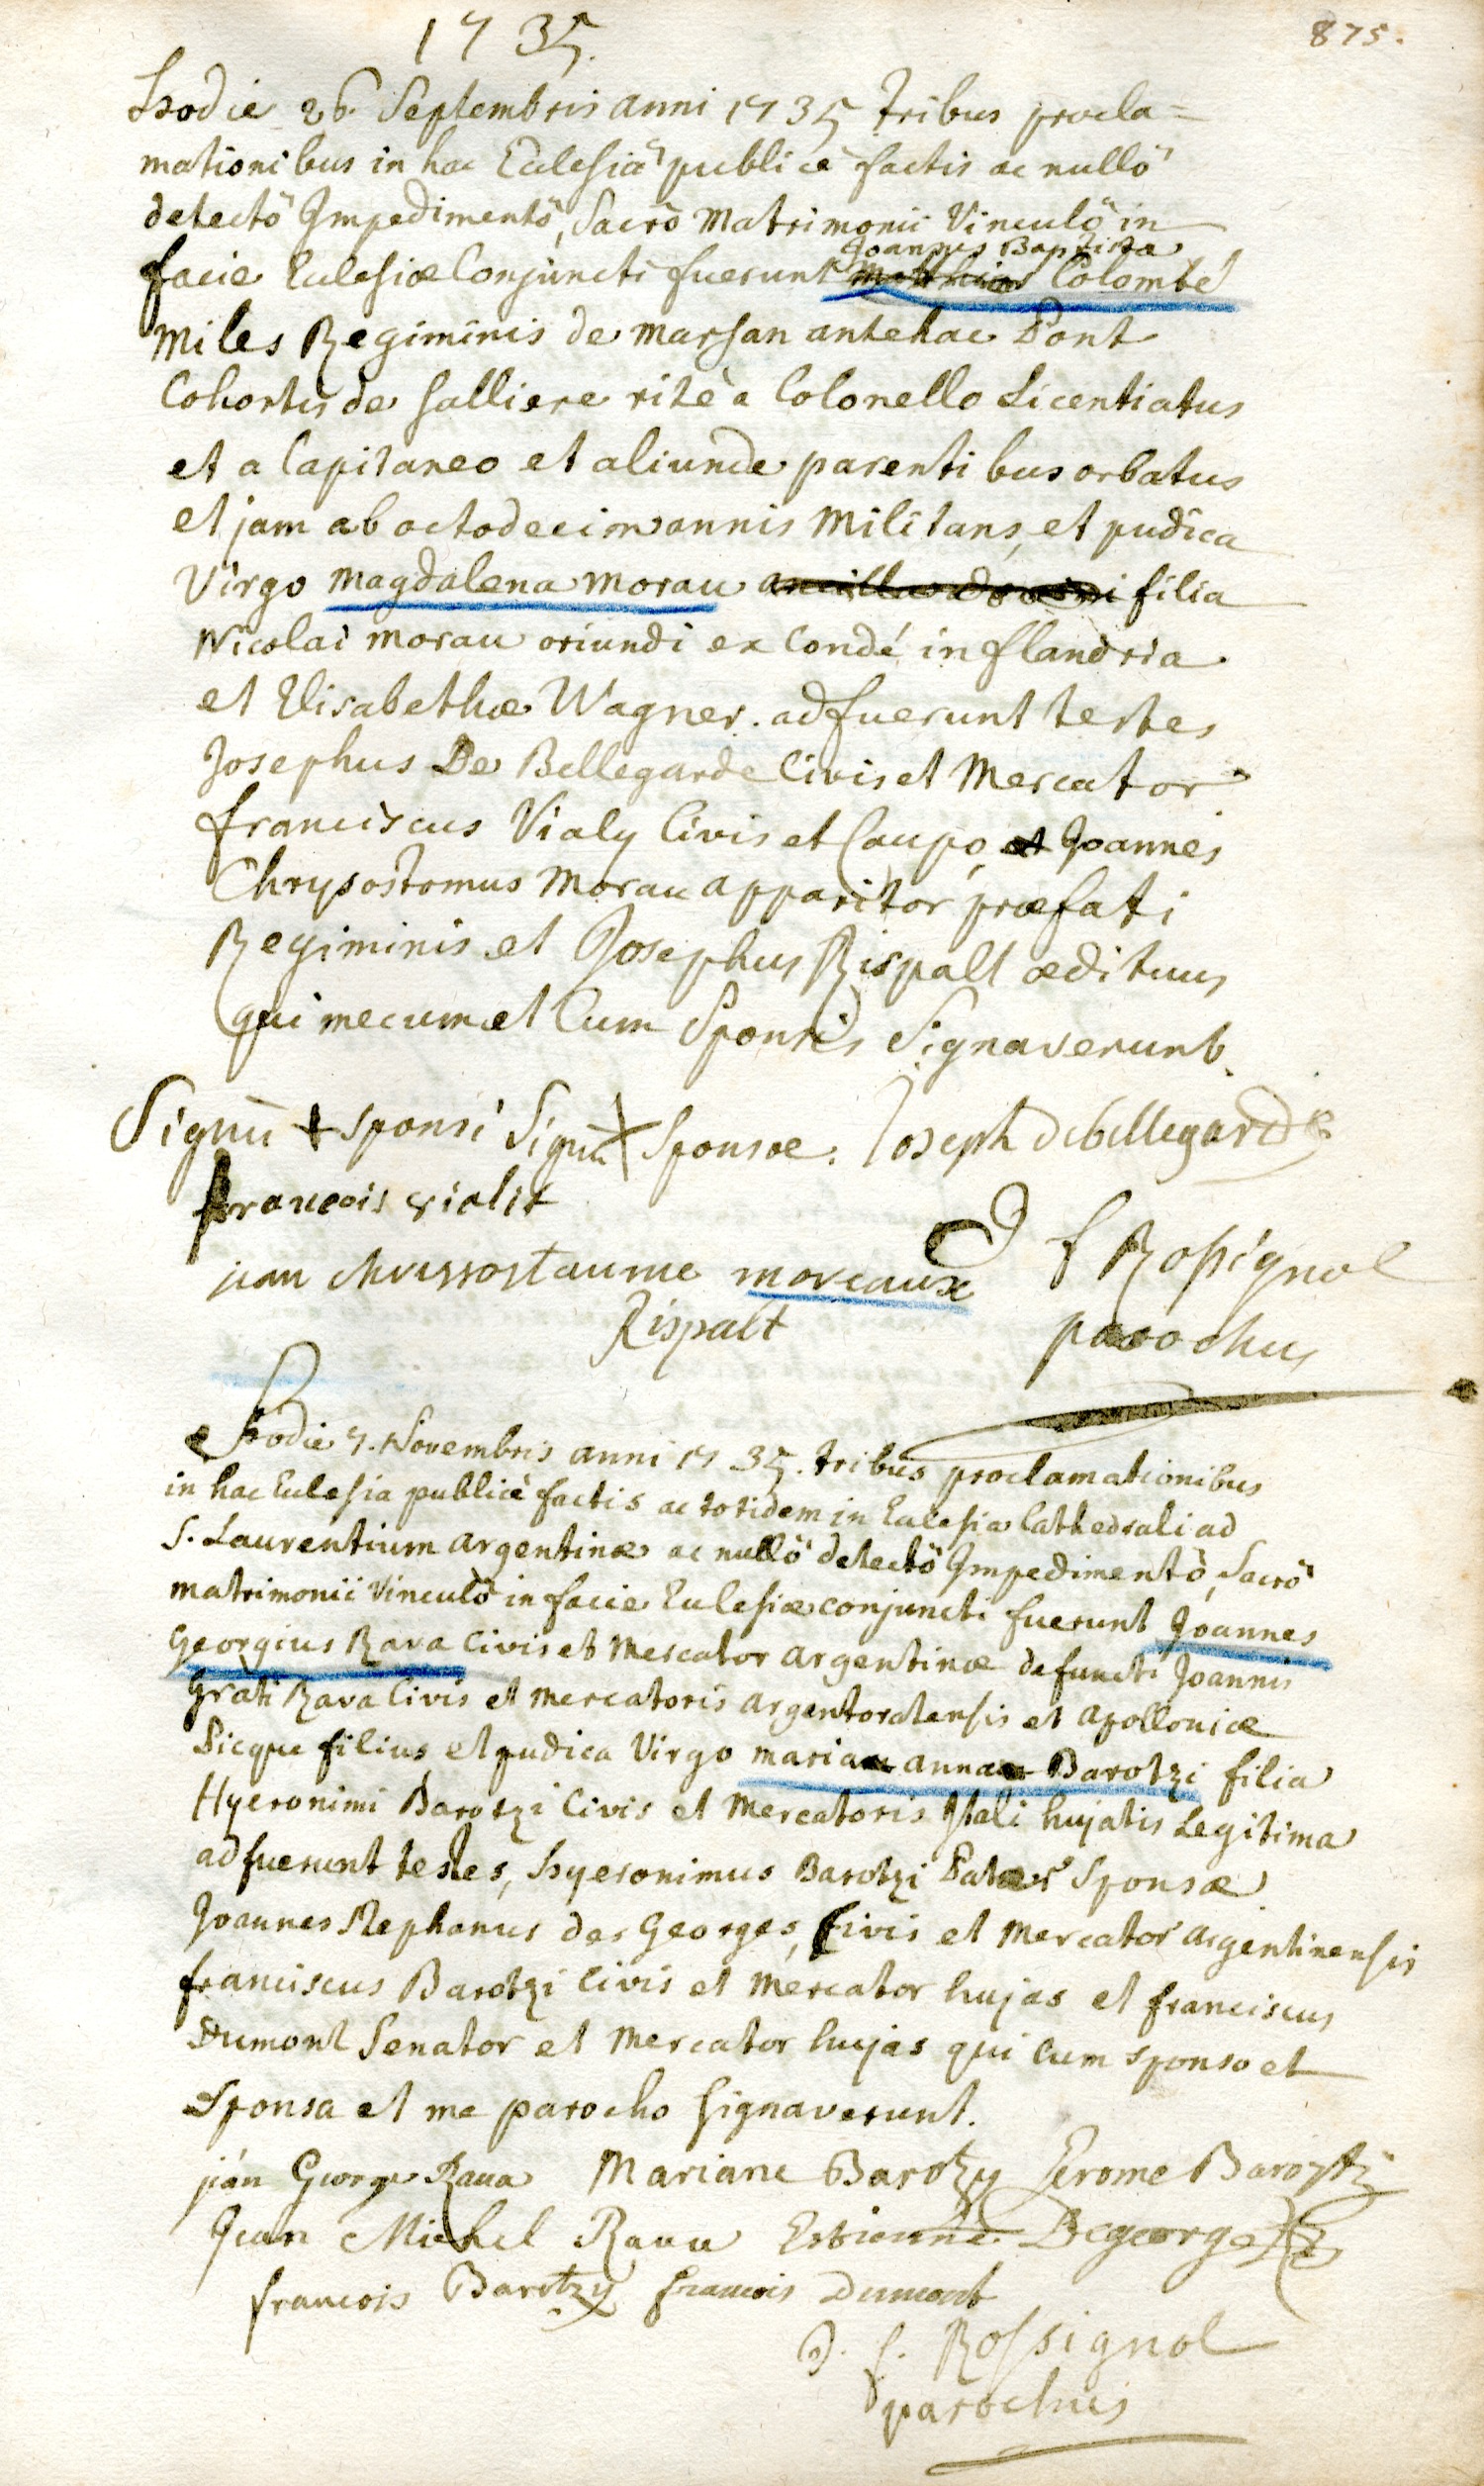 1735.
875.
Hodie 26. Septembris anni 1735 tribus procla=
mationibus in hac Ecclesiâ publicè factis ac nullô
detectô Impedimentô, Sacrô Matrimonii Vinculô in
Joannes Baptista
facie Ecclesiæ Conjuncti fuerunt Colombé
Miles Regiminis de Marsan antehac Pont
Cohortis de Salliere ritè a Colonello Licentiatus
et a Capitaneo et aliunde parentibus orbatus
et jam ab octodecim annis Militans, et pudica
Virgo Magdalena Morau filia
Nicolai Morau oriundi ex Condé in flandria
et Elisabethæ Wagner. adfuerunt testes
Josephus De Bellegarde Civis et Mercator
franciscus Vialy Civis et Caupo, et Joannes
Chrysostomus Morau apparitor præfati
Regiminis et Josephus Rispalt ædituus
qui mecum et Cum Sponsis Signaverunt.
Signū + Sponsi Signū + Sponsæ. Joseph debellegarde
francois violit
jean chrissostaume moreaux
D f Rossignol
Rispalt
parochus
Hodie 7. Novembris anni 1735. tribus proclamationibus
in hac Ecclesia publicè factis ac totidem in Ecclesia Cathedrali ad
S. Laurentium argentinæ ac nullô detectô Impedimentô, Sacrô
matrimonii Vinculô in facie Ecclesiæ conjuncti fuerunt Joannes
Georgius Rava Civis et Mercator argentinæ defuncti Joannis
Grati Rava Civis et mercatoris argentoratensis et apolloniæ
Picque filius et pudica Virgo maria anna Barotzi filia
Hyeronimi Barotzi Civis et Mercatoris Itali hujatis Legitima
adfuerunt testes, Hyeronimus Barotzi Pater Sponsæ
Joannes Stephanus des Georges, Civis et Mercator argentinensis
franciscus Barotzi Civis et Mercator hujas et franciscus
Dumont Senator et Mercator hujas qui cum sponso et
Sponsa et me parocho signaverunt.
ján George Raua Mariane Barotzy Jerome Barozti
Jean Michel Raua Estienne Degeorge
francois Barotzy francois Dumont
D. f. Rossignol
parochus